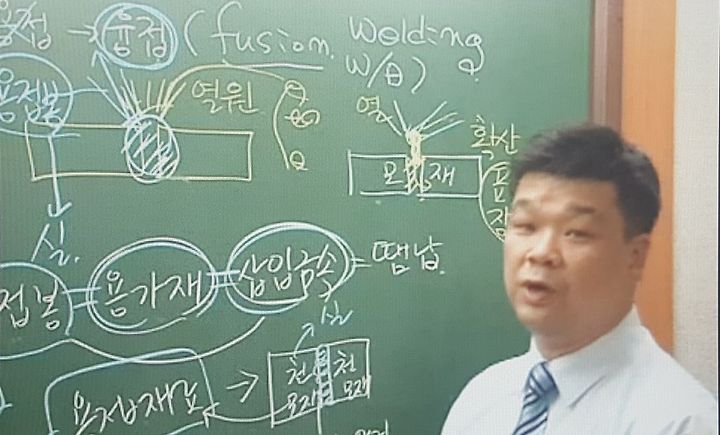 용접 → 융접 (fusion. Welding
W/θ)
용접봉
열원
열
확산
모재
용
접
실.
접봉 = 용가재 = 삽입금속 = 땜납
실
용접재료 →
천 천
모재 모재